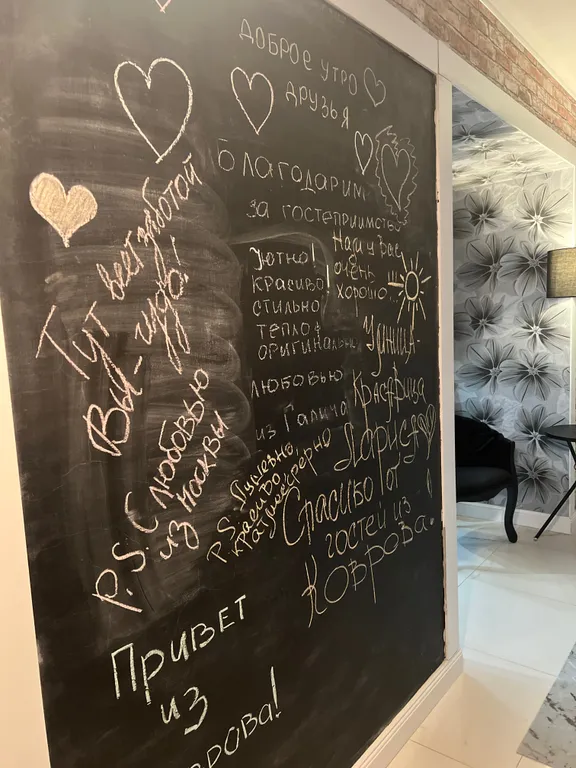 ДОБРОЕ УТРО
ДРУЗЬЯ
БЛАГОДАРИМ
ЗА ГОСТЕПРИИМСТВО
Нам у вас
очень
хорошо...
Уютно!
КРАСИВО!
СТИЛЬНО
ТЕПЛО
ОРИГИНАЛЬНО
ЛЮБОВЬЮ
из Галича
УМНИЦА.
КРАСАВИЦА
ЛАРИСА
P.S. Душевно,
красиво,
атмосферно
Спасибо от
гостей из
Коврова.
Тут веет заботой
Вы - чудо!
P.S. С любовью
из Москвы
Привет
из